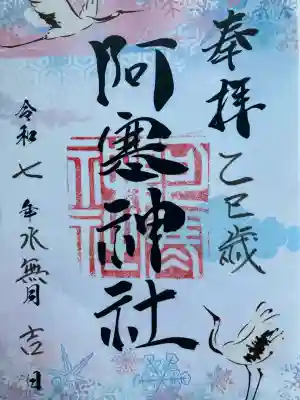 奉拝乙巳歳
阿寒神社
令和七年水無月吉日